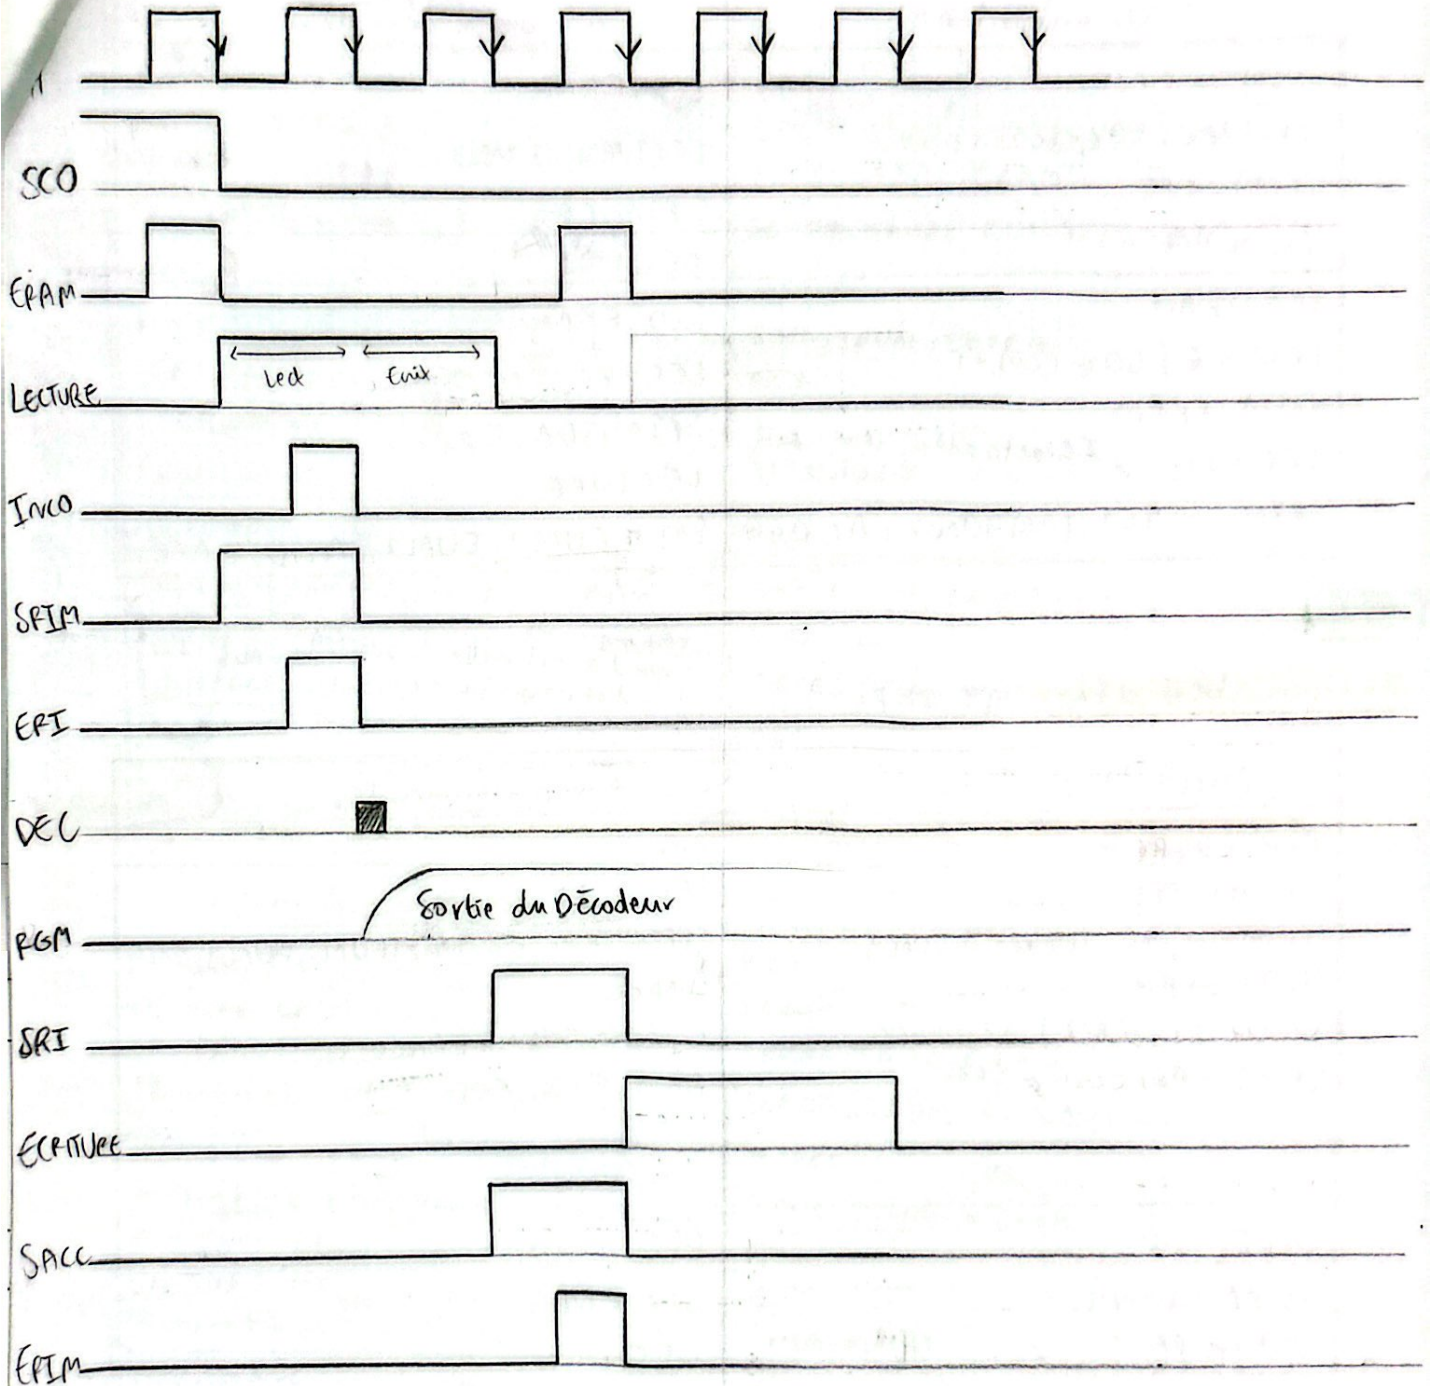 H
SCO
ERAM
LECTURE
Lect
Emis
INCO
SRIM
ERI
DEC
Sortie du Décodeur
RGM
SRI
ECRITURE
SACC
ERIM